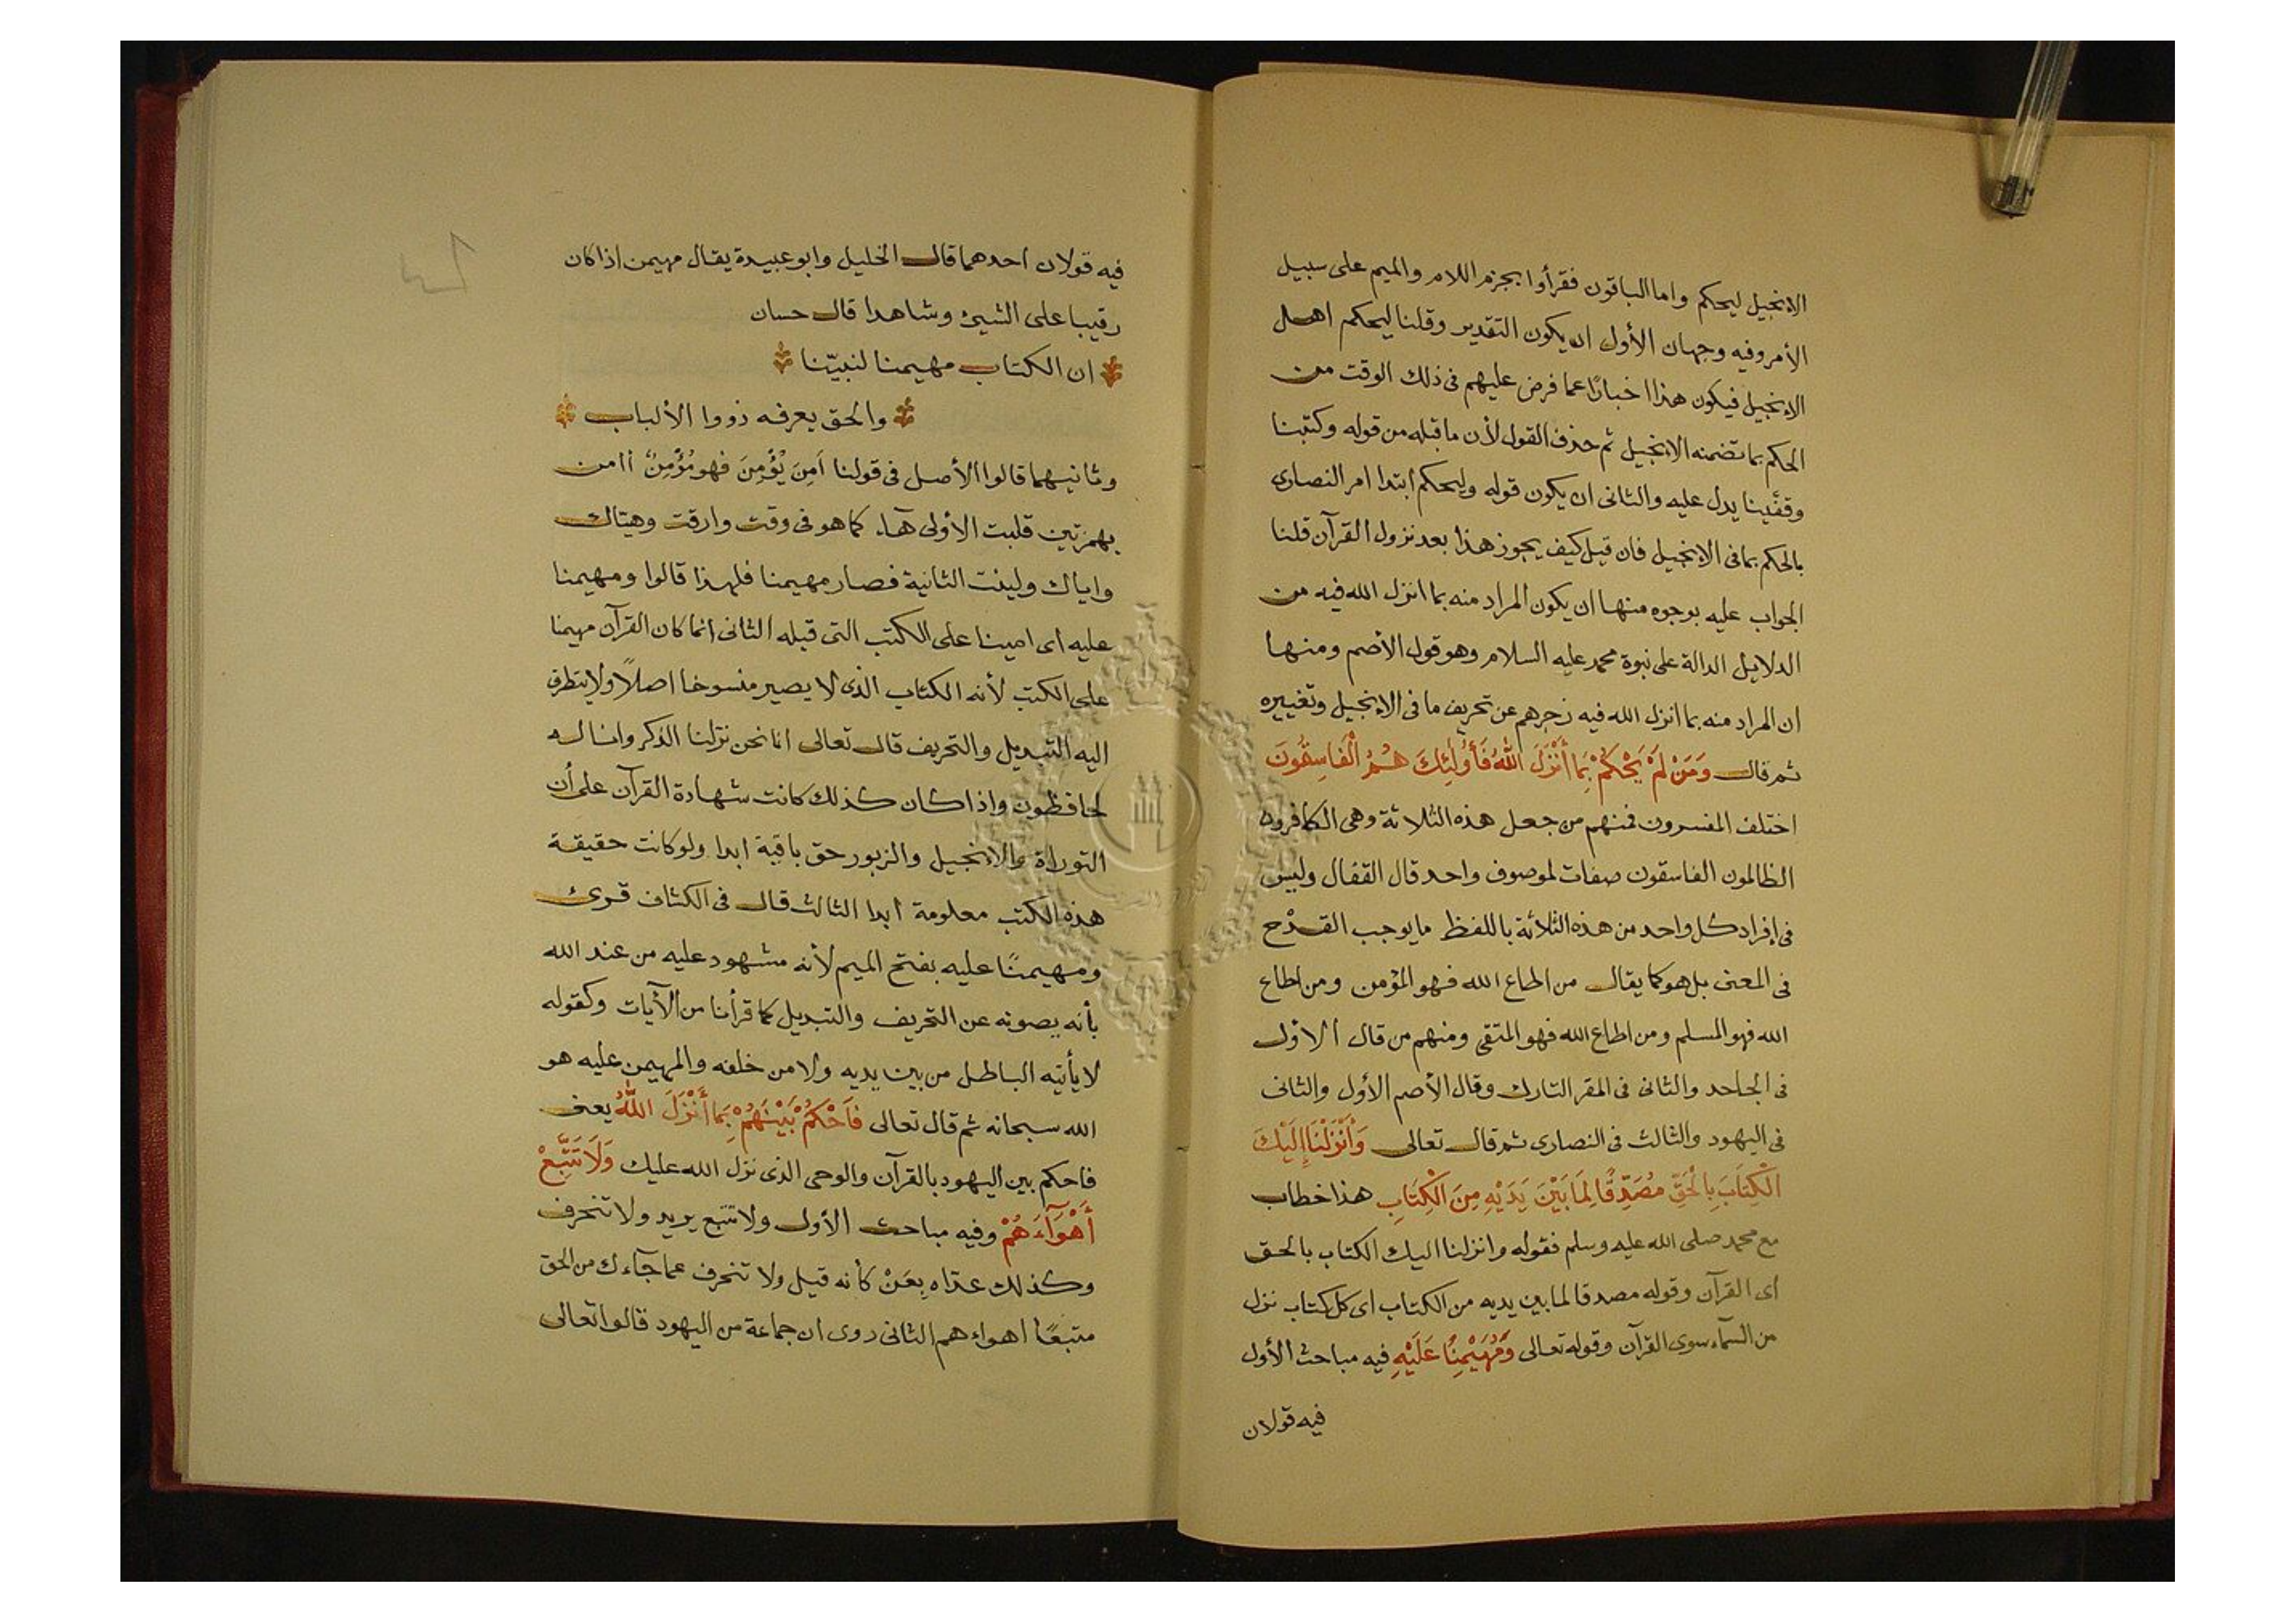 الانجيل ليحكم واما الباقون فقرأوا بجزم اللام والميم على سبيل
الأمر وفيه وجهان الأول ان يكون التقدير وقلنا ليحكم اهل
الانجيل فيكون هذا اخبارًا عما فرض عليهم فى ذلك الوقت من
الحكم بما تضمنه الانجيل ثم حذف القول لأن ما قبله من قوله وكتبنا
وقفَّينا يدل عليه والثانى ان يكون قوله وليحكم ابتدا امر النصارى
بالحكم بما فى الانجيل فان قيل كيف يجوز هذا بعد نزول القرآن قلنا
الجواب عليه بوجوه منها ان يكون المراد منه بما انزل الله فيه من
الدلايل الدالة على نبوة محمد عليه السلام وهو قول الأصم ومنها
ان المراد منه بما انزل الله فيه زجرهم عن تحريف ما فى الانجيل وتغييره
ثم قال وَمَنْ لَمْ يَحْكُمْ بِمَا أَنْزَلَ اللهُ فَأُولَٰئِكَ هُمُ الْفَاسِقُونَ
اختلف المفسرون فمنهم من جعل هذه الثلاثة وهى الكافرون
الظالمون الفاسقون صفات لموصوف واحد قال القفال وليس
فى إفراد كل واحد من هذه الثلاثة باللفظ ما يوجب القدْح
فى المعنى بل هو كما يقال من اطاع الله فهو المؤمن ومن اطاع
الله فهو المسلم ومن اطاع الله فهو المتقى ومنهم من قال الأول
فى الجاحد والثانى فى المقر التارك وقال الأصم الأول والثانى
فى اليهود والثالث فى النصارى ثم قال تعالى وَأَنْزَلْنَا إِلَيْكَ
الْكِتَابَ بِالْحَقِّ مُصَدِّقًا لِمَا بَيْنَ يَدَيْهِ مِنَ الْكِتَابِ هذا خطاب
مع محمد صلى الله عليه وسلم فقوله وانزلنا اليك الكتاب بالحق
اى القرآن وقوله مصدقا لما بين يديه من الكتاب اى كل كتاب نزل
من السمآء سوى القرآن وقوله تعالى وَمُهَيْمِنًا عَلَيْهِ فيه مباحث الأول
فيه قولان
فيه قولان احدهما قال الخليل وابو عبيدة يقال مهيمن اذا كان
رقيبا على الشيئ وشاهدا قال حسان
ان الكتاب مهيمنا لنبيّنا
والحق يعرفه ذووا الألباب
وثانيهما قالوا الأصل فى قولنا اَمِنَ يُؤْمِنَ فهو مُؤْمِنٌ أامن
بهمزتين قلبت الأولى هآء كما هو فى وقت وارقت وهيتاك
واياك ولينت الثانية فصار مهيمنا فلهذا قالوا ومهيمنا
عليه اى امينا على الكتب التى قبله الثانى انما كان القرآن مهيمنا
على الكتب لأنه الكتاب الذى لا يصير منسوخا اصلاً ولا يتطرق
اليه التبديل والتحريف قال تعالى انا نحن نزلنا الذكر وانا له
لحافظون واذا كان كذلك كانت شهادة القرآن على أن
التوراة والانجيل والزبور حق باقية ابدا ولو كانت حقيقة
هذه الكتب معلومة ابدا الثالث قال فى الكشاف قرئ
ومهيمنًا عليه بفتح الميم لأنه مشهود عليه من عند الله
بأنه يصونه عن التحريف والتبديل كما قرأنا من الآيات وكقوله
لا يأتيه الباطل من بين يديه ولا من خلفه والمهيمن عليه هو
الله سبحانه ثم قال تعالى فَاَحْكُمْ بَيْنَهُمْ بِمَا أَنْزَلَ اللهُ يعنى
فاحكم بين اليهود بالقرآن والوحى الذى نزل الله عليك وَلَا تَتَّبِعْ
أَهْوَآءَهُمْ وفيه مباحث الأول ولا تتبع يريد ولا تنحرف
وكذلك عدّاه بِعَنْ كأنه قيل ولا تنحرف عما جآءك من الحق
متبعًا اهواءهم الثانى روى ان جماعة من اليهود قالوا تعالى